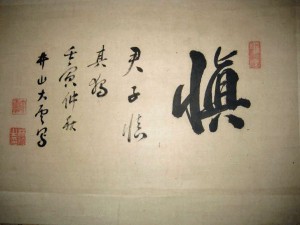 慎
君子慎
其獨
壬寅仲秋
井山大雲寫